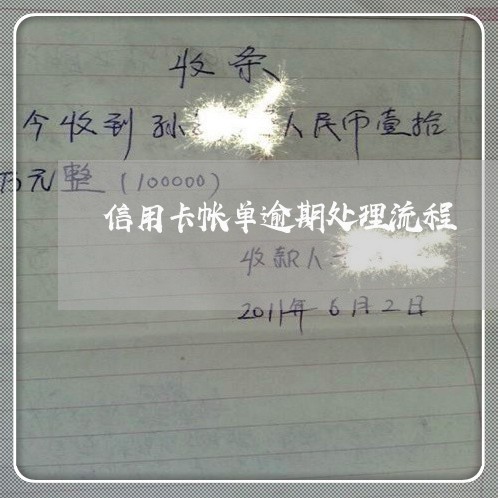 收条
今收到孙 人民币壹拾
万元整（100000）
信用卡帐单逾期处理流程
收款人
2011年6月2日